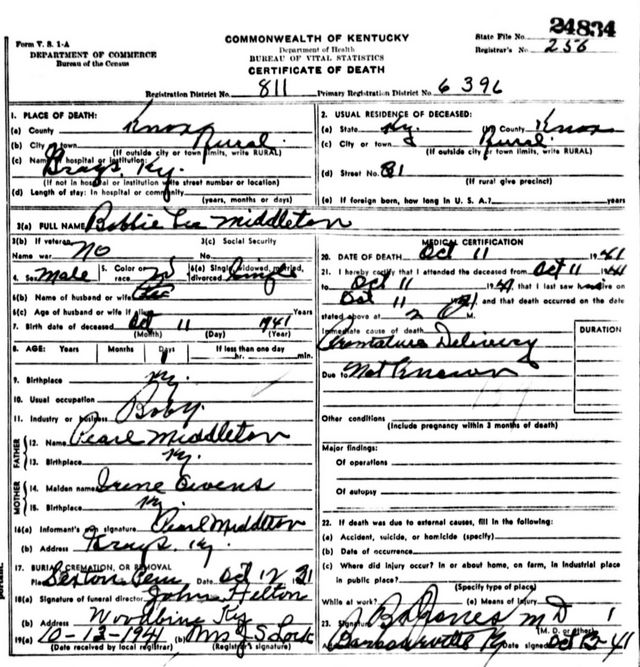 24834
Form V. S. 1-A
DEPARTMENT OF COMMERCE
Bureau of the Census
COMMONWEALTH OF KENTUCKY
Department of Health
BUREAU OF VITAL STATISTICS
CERTIFICATE OF DEATH
State File No.
Registrar's No. 256
Registration District No. 811 Primary Registration District No. 6396
1. PLACE OF DEATH:
(a) County Knox
(b) City or town Rural
(If outside city or town limits, write RURAL)
(c) Name of hospital or institution:
Grays, Ky.
(If not in hospital or institution write street number or location)
(d) Length of stay: In hospital or community
(years, months or days)
2. USUAL RESIDENCE OF DECEASED:
(a) State Ky. (b) County Knox
(c) City or town Rural
(If outside city or town limits, write RURAL)
(d) Street No.
(If rural give precinct)
(e) If foreign born, how long in U. S. A.? years
3(a) FULL NAME Bobbie Lee Middleton
3(b) If veteran
Name war No
3(c) Social Security
No.
4. Sex Male 5. Color or
race W 6(a) Single, widowed, married,
divorced Single
6(b) Name of husband or wife
6(c) Age of husband or wife if alive
7. Birth date of deceased Oct 11 1941
(Month) (Day) (Year)
8. AGE: Years Months Days If less than one day
hr. min.
9. Birthplace Ky.
10. Usual occupation
11. Industry or business Baby.
FATHER
12. Name Pearl Middleton
13. Birthplace Ky.
MOTHER
14. Maiden name Irene Owens
15. Birthplace Ky.
16(a) Informant's own signature Pearl Middleton
(b) Address Grays, Ky.
17. BURIAL, CREMATION, OR REMOVAL
Place Sexton Cem Date Oct 12 41
18(a) Signature of funeral director John Helton
(b) Address Woodbine Ky
19(a) 10-12-1941 (b) Mrs J S Lock
(Date received by local registrar) (Registrar's signature)
MEDICAL CERTIFICATION
20. DATE OF DEATH Oct 11 1941
21. I hereby certify that I attended the deceased from Oct 11 1941
to Oct 11 1941, that I last saw h alive on
Oct 11 1941 and that death occurred on the date
stated above at 2 M.
Immediate cause of death
Premature Delivery
DURATION
Due to Not Known
Other conditions
(Include pregnancy within 3 months of death)
Major findings:
Of operations
Of autopsy
22. If death was due to external causes, fill in the following:
(a) Accident, suicide, or homicide (specify)
(b) Date of occurrence
(c) Where did injury occur? In or about home, on farm, in industrial place
in public place?
(Specify type of place)
While at work? (e) Means of Injury
23. Signature Jones M D
(M. D. or other)
Barbourville Ky Date signed